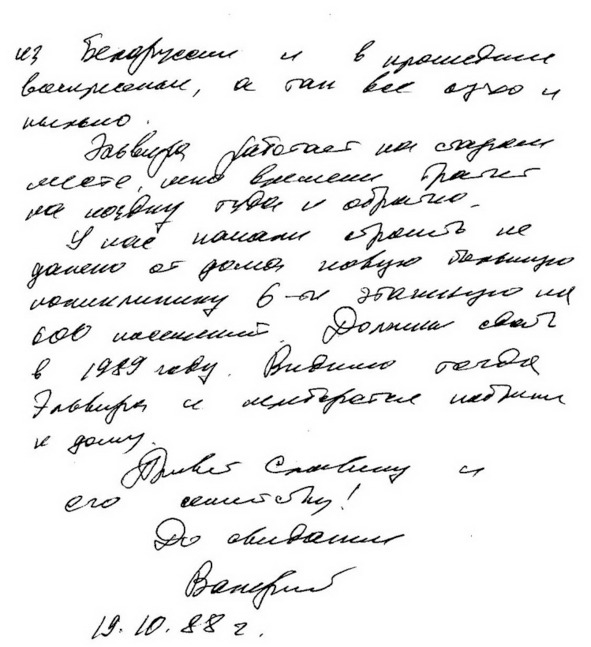 из Белоруссии и в прошедшее
воскресение, а так все сухо и
пыльно.
Эльвира работает на старом
месте, много времени тратит
на поездку туда и обратно.
У нас начали строить не
далеко от дома новую большую
поликлинику 6-и этажную на
600 посещений. Должны сдать
в 1989 году. Видимо тогда
Эльвира и переберется поближе
к дому.
Привет Славину и
его семейству!
До свидания
Валерий
19.10.88 г.